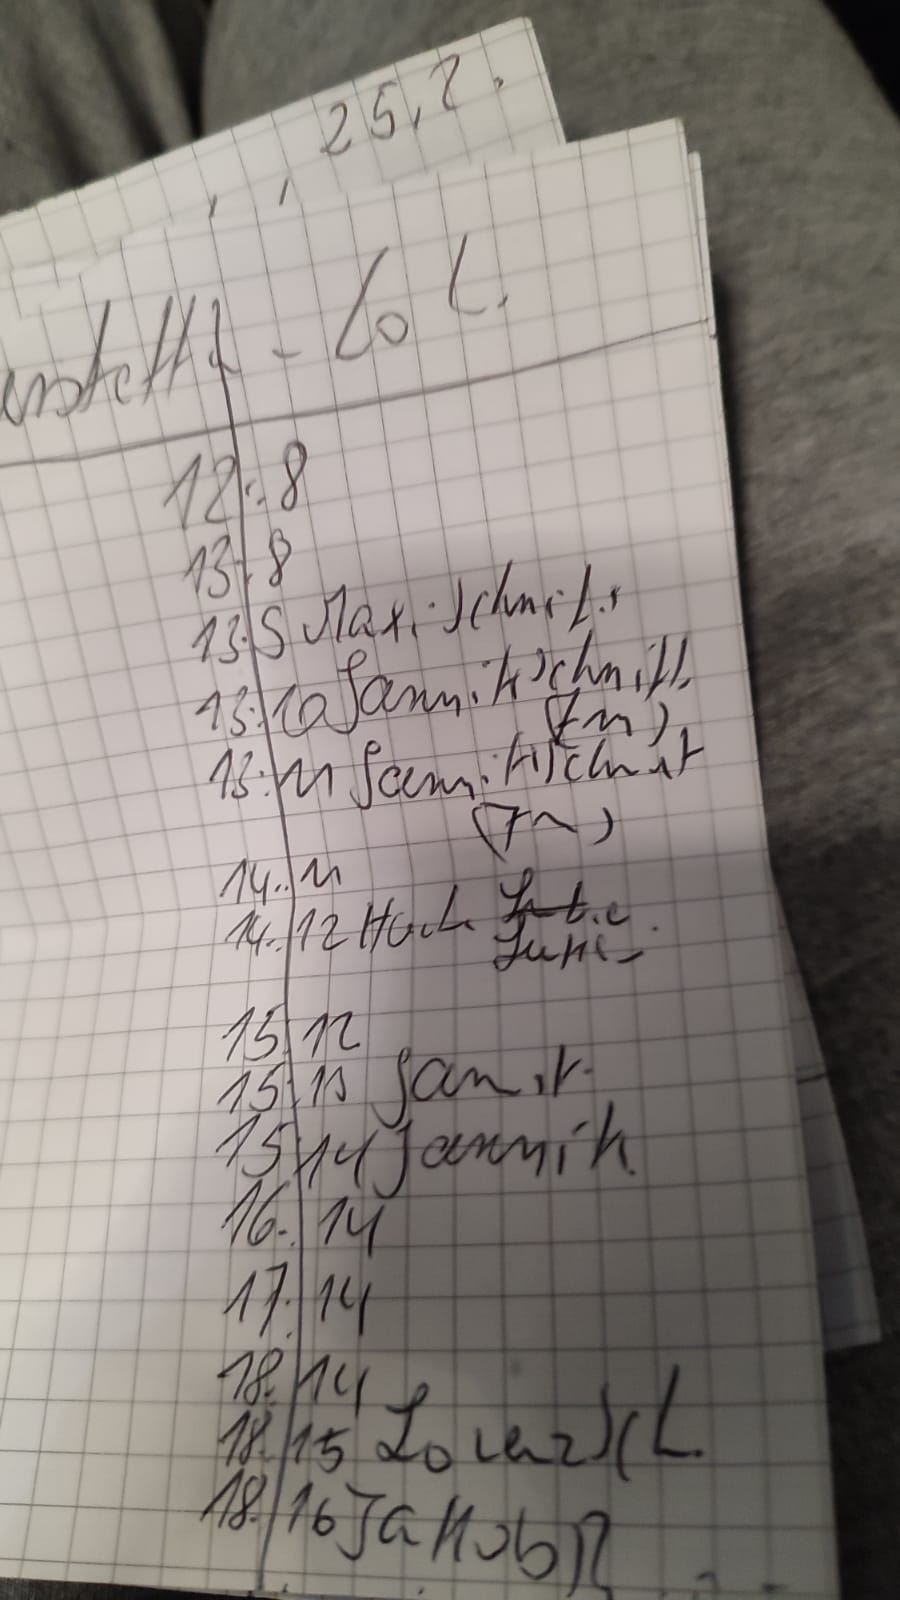 25.2.
- Lo L.
12:8
13:8
13:9 Maxi Schmit.
13:10 Jannik Schmitt.
(7m)
13:11 Jannik Schmitt
(7m)
14:11
14:12
15:12
15:13 Jannik
15:14 Jannik
16:14
17:14
18:14
18:15 Lorenz Sch.
18:16 Jakob R